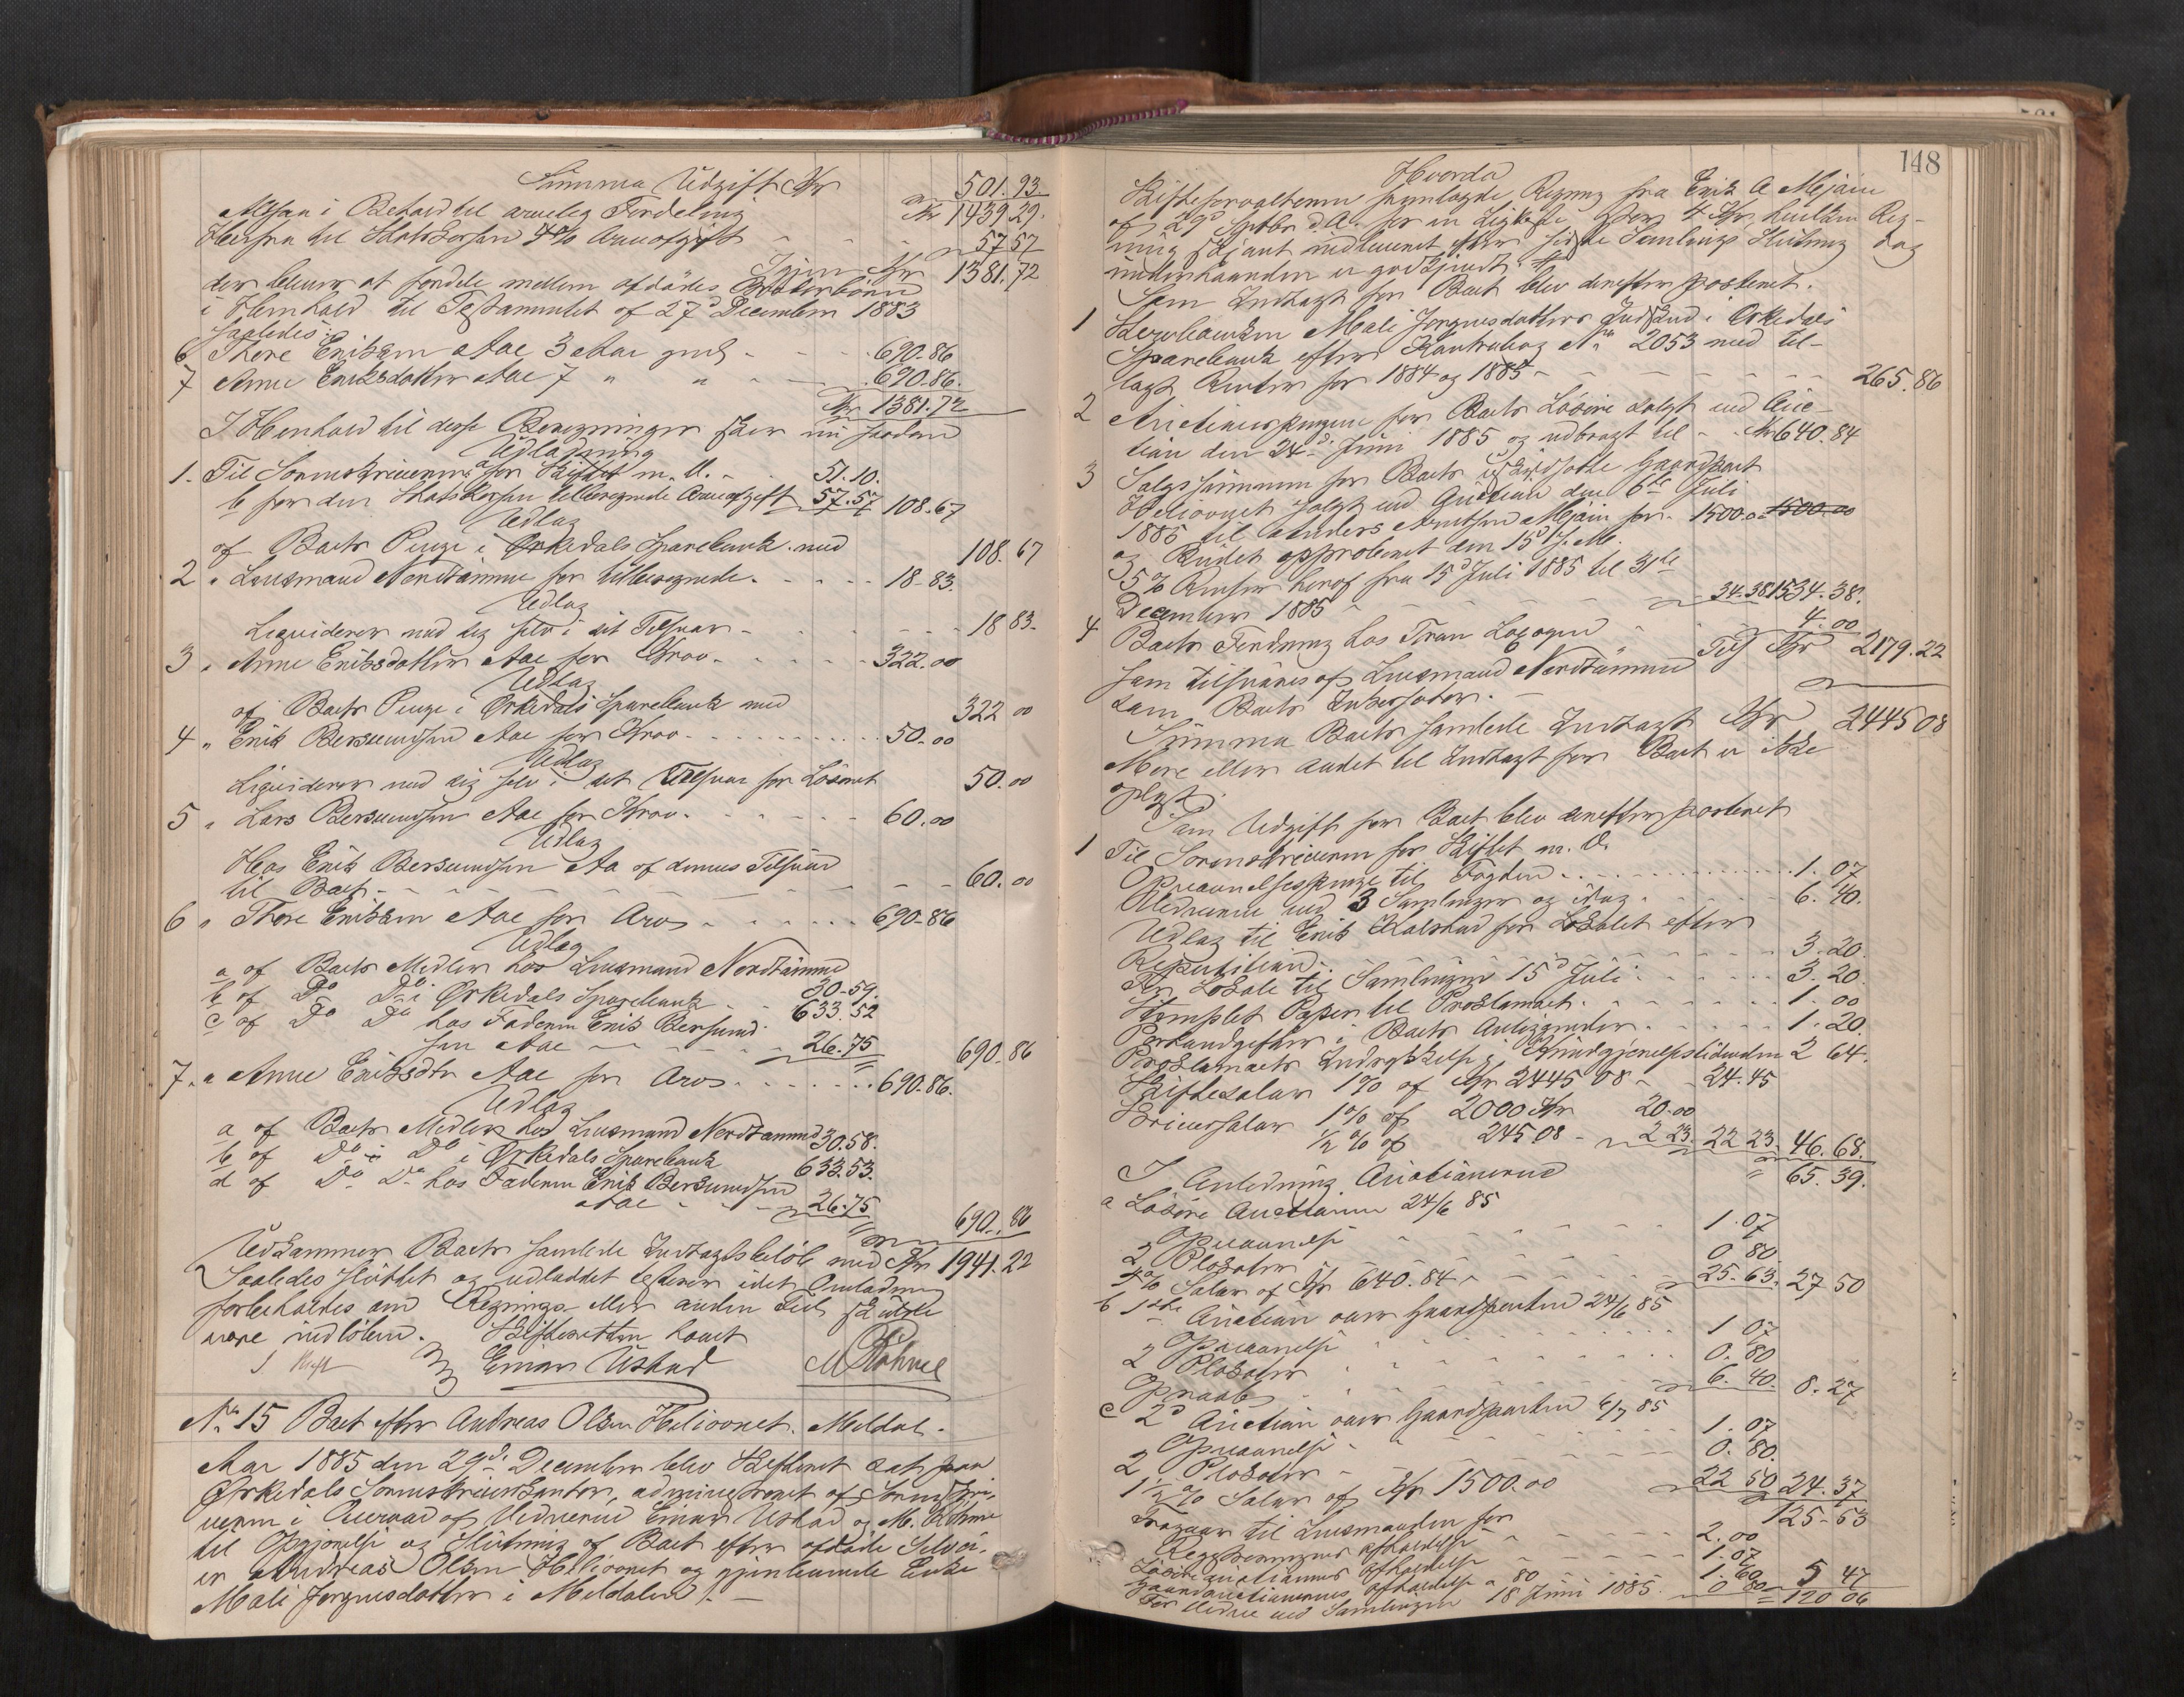 Summa Udgift Kr 501.93
Altsaa i Behold til arvelig Fordeling Kr 1439.29.
Herfra til Statskassen 4% Arveafgift - - - 57.57
Igjen Kr 1381.72
der bliver at fordele mellem afdødes Broderbørn
i Henhold til Testamentet af 27d December 1883
saaledes:
6 Thore Eriksen Aae 3 - - - 690-86
7 Anne Eriksdatter Aae 7 " " - - 690.86.
Kr 1381.72
I Henhold til disse Beregninger skeer nu saadan
Udlodning
1. Til Sorenskriveren a for Skiftet m. V. - 51.10.
b for den Statskassen tilberegnede Arveafgift 57.57 108.67
Udlag
af Boets Penge i Orkedals Sparebank med 108.67
2 " Lensmand Nordtømme for tilberegnede - - - - - 18-83.
Udlag
Liquiderer med sig selv i sit Tilsvar - - - - 18 83-
3 " Anne Eriksdatter Aae for Krav - - - - 322.00
Udlag
af Boets Penge i Orkedals Sparebank med 322 00
4 " Erik Bersvendsen Aae for Krav - - - - - 50.00
Udlag
Liquiderer med sig selv i sit Tilsvar for Løsøret 50.00
5 " Lars Bersvendsen Aae for Krav - - - - 60.00
Udlag
Hos Erik Bersvendsen Aa af dennes Tilsvar
til Boet - - - - - - - 60.00
6 " Thore Eriksen Aae for Arv - - - - - 690-86
Udlag
a af Boets Midler hos Lensmand Nordtømme 30-59.
b af Do Do i Orkedals Sparebank - - 633.52
c af Do Do hos Faderen Erik Bersvend-
sen Aae - - - - - 26.75 690.86
7. " Anne Eriksdtr Aae for Arv - - - - - 690-86.
Udlag
a af Boets Midler hos Lensmand Nordtømme 30.58.
b af Do Do i Orkedals Sparebank 633.53.
d af Do Do hos Faderen Erik Bersvendsen
Aae - - - 26.75 690.86
Udkommer Boets samlede Indtægtsbeløb med Kr 1941.22
Saaledes sluttet og udloddet eftersom idet Omladning
forbeholdes om Regnings- eller anden Feil skulde
være indløben. Skifteretten hævet
Einar Ustad M Bøhme
No 15 Boet efter Andreas Olsen Heliovnet. Meldal.
Aar 1885 den 29d December blev Skifteret sat paa
Orkedals Sorenskriverkontor, administreret af Sorenskri-
veren i Overvær af Vidnerne Einar Ustad og M. Bøhme
til Opgjørelse og Slutning af Boet efter afdøde Selvei-
er Andreas Olsen Heliovnet og gjenlevende Enke
Mali Jørgensdatter i Meldalen! -
148
Hvorda
Skifteforvalteren fremlagde Regning fra Erik A Mejain
af 29d Septbr d.A. for en Ligkiste, stor 4 Kr, hvilken Reg-
ning skjønt indleveret efter sidste Samlings Slutning dog
underhaanden er godkjendt.
Som Indtægt for Boet blev derefter posteret.
1 Mali Jørgensdatters Indskud i Orkedals
Sparebank efter Kontrabog No 2053 med til-
lagt Renter for 1884 og 1885 - - - - - - 265.86
2 Auctionspengene for Boets Løsøre solgt ved Auc-
tion den 24d Juni 1885 og udbragt til - Kr 640.84
3 Salgssummen for Boets Gaardpart
Heliovnet solgt ved Auction den 6te Juli
1885 til Anders Arntsen Mejain for - 1500.00 1500.00
og Budet approberet den 15d s. M.
5% Renter heraf fra 15d Juli 1885 til 31te
December 1885 - - - - - 34.38 1534.38.
4 Boets Fordring hos Tron - - - 4.00
Tils Kr 2179.22
som tilsvares af Lensmand Nordtømme
som Boets Inkassator. -
Summa Boets samlede Indtægt Kr 2445 08
Mere eller andet til Indtægt for Boet er ikke
oplyst.
Som Udgift for Boet blev derefter posteret
1 Til Sorenskriveren for Skiftet m. V.
Opnævnelsespenge til Fogden - - - - - 1.07
Vidnerne ved 3 Samlinger og idag - - - 6.40.
Udlag til Erik Kalstad for Lokalet efter
Requisition - - - - - - 3-20.
For Lokale til Samlingen 15d Juli - - - 3.20
Stemplet Papir til Proklamaet - - - - 1.00
i Boets Anliggender - - - 1.20.
Proklamaets Indrykkelse i Kundgjørelsestidende 2 64.
Skiftesalær 1% af Kr 2445 08 - - 24.45
Skriversalær 1% af 2000 Kr 20.00
½ % af 245.08 - 2 23. 22 23. 46.68.
65.39.
I Anledning Auctionerne
a Løsøre Auctionen 24/6 85
Opnævnelse - - - - - 1.07
2 Plakater - - - - 0.80
4% Salær af Kr 640.84 - - - 25.63. 27 50
b 1ste Auction over Gaardparten 24/6 85
Opnævnelse - - - - 1 07
2 Plakater - - - - 0.80
Opraab - - - - 6.40. 8.27
c 2d Auction over Gaardparten 6/7 85
Opnævnelse - - - - 1.07
2 Plakater - - - - 0.80.
1½ % Salær af Kr 1500.00 22 50 24.37
125-53
Fragaar til Lensmanden for
afholdelse - - 2.00
Løsøreauctionens Afholdelse - - 1.07
Gaardauctionernes Afholdelse a 80 - 1.60
For Vidne ved Samlingen 18 Juni 1885. 0 80 5 47
120 06